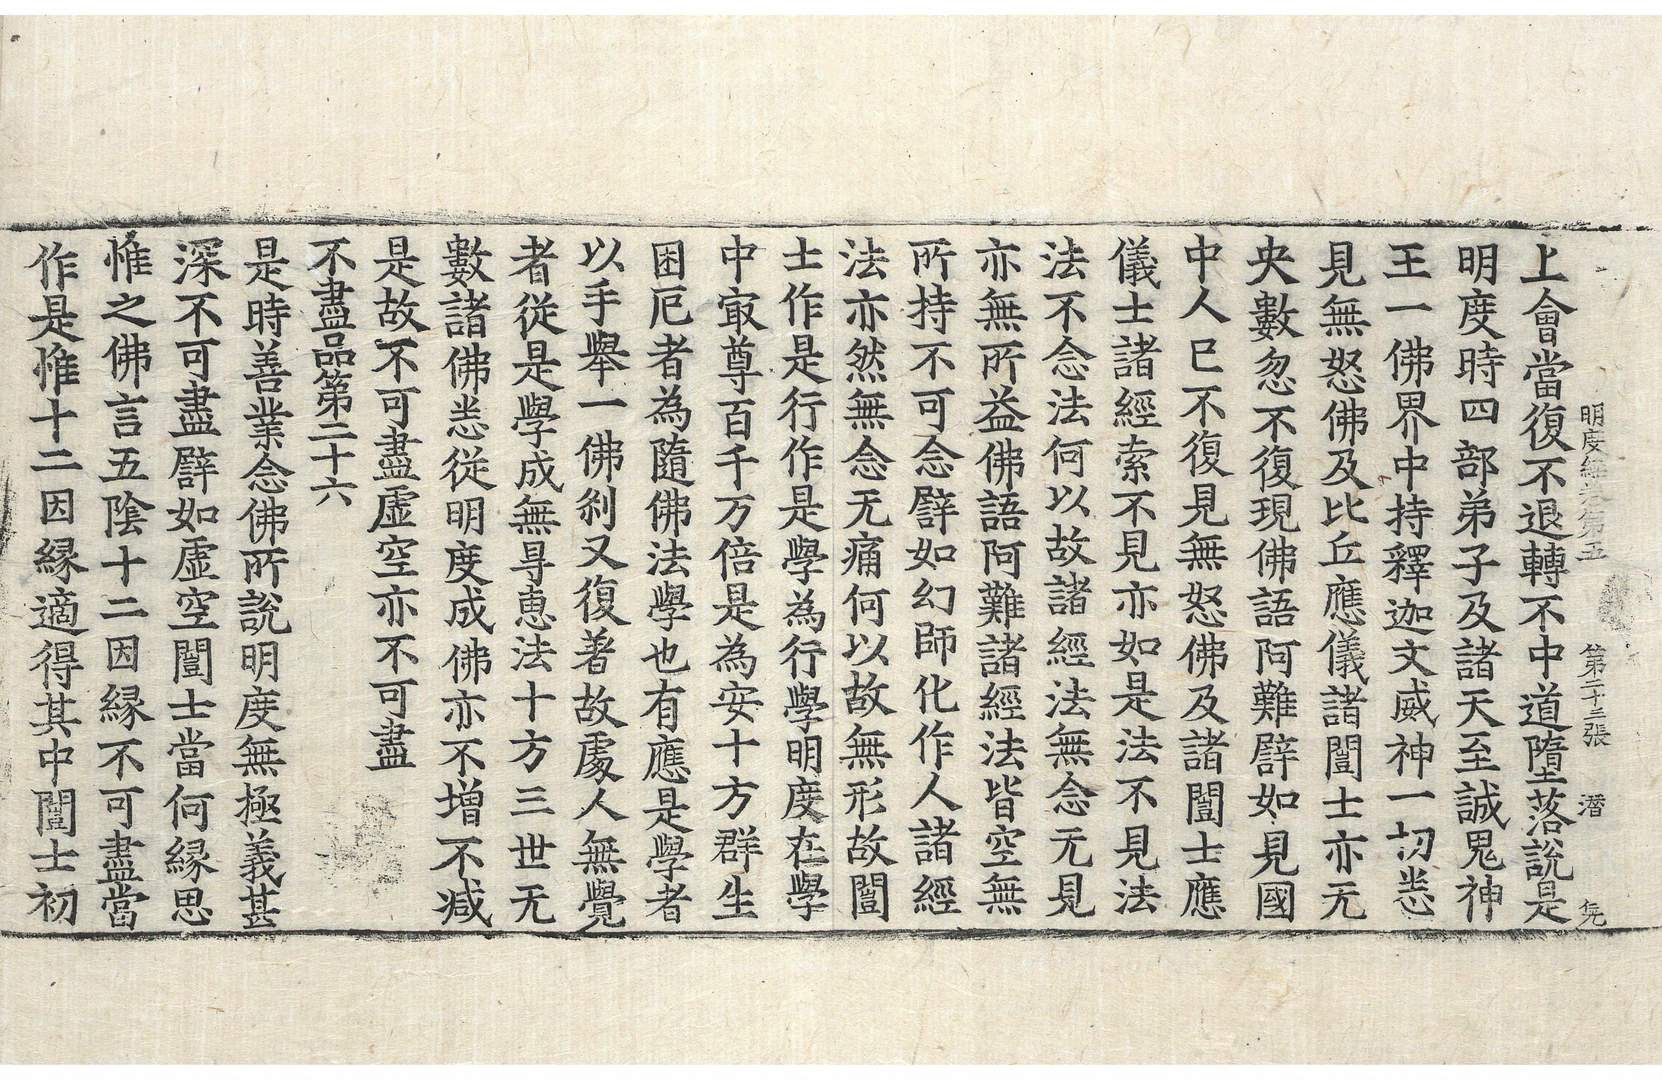 明度經卷第五 第二十三張 潛
上會當復不退轉不中道墮落說是
明度時四部弟子及諸天至誠鬼神
王一佛界中持釋迦文威神一切悉
見無怒佛及比丘應儀諸闓士亦无
央數忽不復現佛語阿難譬如見國
中人已不復見無怒佛及諸闓士應
儀士諸經索不見亦如是法不見法
法不念法何以故諸經法無念无見
亦無所益佛語阿難諸經法皆空無
所持不可念譬如幻師化作人諸經
法亦然無念无痛何以故無形故闓
士作是行作是學為行學明度在學
中㝡尊百千万倍是為安十方群生
困厄者為隨佛法學也有應是學者
以手舉一佛剎又復著故處人無覺
者從是學成無㝵恵法十方三世无
數諸佛悉從明度成佛亦不增不減
是故不可盡虛空亦不可盡
不盡品第二十六
是時善業念佛所說明度無極義甚
深不可盡譬如虛空闓士當何緣思
惟之佛言五陰十二因緣不可盡當
作是惟十二因緣適得其中闓士初